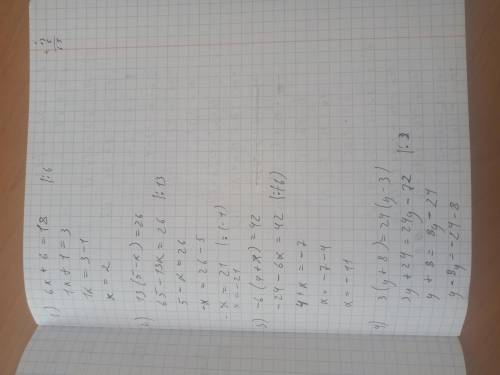 1) 6x + 6 = 18 |:6
1x + 1 = 3
1x = 3-1
x = 2
2) 13 (5-x) = 26
65 - 13x = 26 |:13
5 - x = 26
-x = 26 - 5
-x = 21 |:(-1)
x = -21
3) -6 (4+x) = 42
-24 - 6x = 42 |:(-6)
4 + x = -7
x = -7-4
x = -11
4) 3(y+8) = 24(y-3)
3y + 24 = 24y - 72 |:3
y + 8 = 8y - 24
y - 8y = -24 - 8